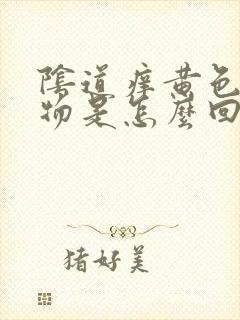 陰道痒黄色
物是怎麼回
猪好美